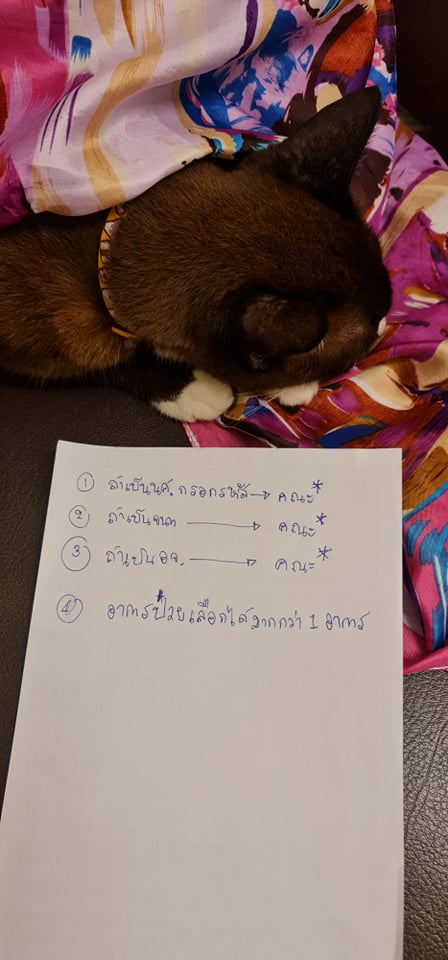 ① ถ้าเป็นนศ. กรอกรหัส → คณะ*
② ถ้าเป็นจนท → คณะ*
③ ถ้าเป็น อจ. → คณะ*
④ อาการป่วยเลือกได้มากกว่า 1 อาการ